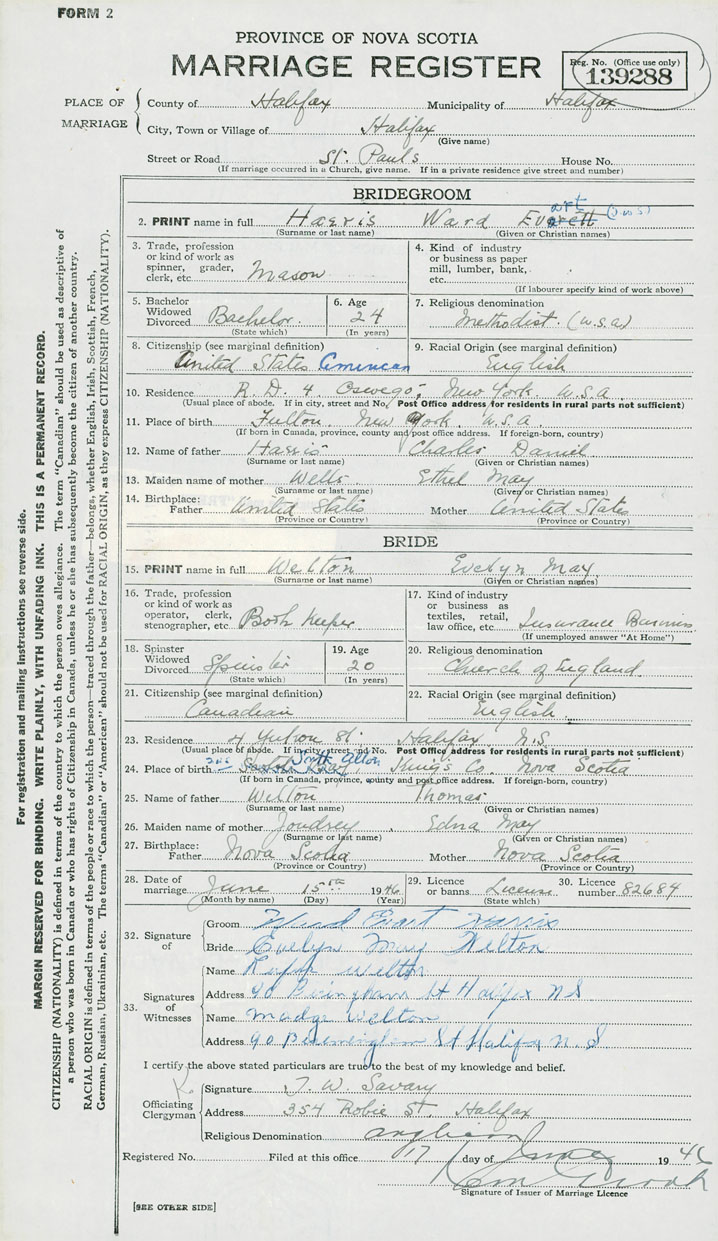 FORM 2
PROVINCE OF NOVA SCOTIA
MARRIAGE REGISTER
Reg. No. (Office use only)
139288
PLACE OF MARRIAGE
County of Halifax Municipality of Halifax
City, Town or Village of Halifax
(Give name)
Street or Road St. Paul's House No.
(If marriage occurred in a Church, give name. If in a private residence give street and number)
BRIDEGROOM
art
2. PRINT name in full Harris Ward Everett
(Surname or last name) (Given or Christian names)
3. Trade, profession or kind of work as spinner, grader, clerk, etc. Mason
4. Kind of industry or business as paper mill, lumber, bank, etc.
(If labourer specify kind of work above)
5. Bachelor Widowed Divorced Bachelor
(State which)
6. Age 24
(In years)
7. Religious denomination Methodist (U.S.A)
8. Citizenship (see marginal definition)
United States American
9. Racial Origin (see marginal definition)
English
10. Residence R. D. 4 Oswego, New York U.S.A
(Usual place of abode. If in city, street and No. Post Office address for residents in rural parts not sufficient)
11. Place of birth Fulton New York U.S.A.
(If born in Canada, province, county and post office address. If foreign-born, country)
12. Name of father Harris Charles Daniel
(Surname or last name) (Given or Christian names)
13. Maiden name of mother Wells Ethel May
(Surname or last name) (Given or Christian names)
14. Birthplace:
Father United States Mother United States
(Province or Country) (Province or Country)
BRIDE
15. PRINT name in full Welton Evelyn May
(Surname or last name) (Given or Christian names)
16. Trade, profession or kind of work as operator, clerk, stenographer, etc. Book Keeper
17. Kind of industry or business as textiles, retail, law office, etc. Insurance Business
(If unemployed answer "At Home")
18. Spinster Widowed Divorced Spinster
(State which)
19. Age 20
(In years)
20. Religious denomination
Church of England
21. Citizenship (see marginal definition)
Canadian
22. Racial Origin (see marginal definition)
English
23. Residence 4 Yukon St. Halifax N.S
(Usual place of abode. If in city, street and No. Post Office address for residents in rural parts not sufficient)
South Alton
24. Place of birth King's Co. Nova Scotia
(If born in Canada, province, county and post office address. If foreign-born, country)
25. Name of father Welton Thomas
(Surname or last name) (Given or Christian names)
26. Maiden name of mother Joudrey Edna May
(Surname or last name) (Given or Christian names)
27. Birthplace:
Father Nova Scotia Mother Nova Scotia
(Province or Country) (Province or Country)
28. Date of marriage June 15th 1946
(Month by name) (Day) (Year)
29. Licence or banns License
(State which)
30. Licence number 82684
32. Signature of
Groom Harris
Bride Evelyn May Welton
33. Signatures of Witnesses
Name Welton
Address 90 St Halifax N S
Name Madge Welton
Address 90 St Halifax N. S
I certify the above stated particulars are true to the best of my knowledge and belief.
Officiating Clergyman
Signature T. W. Savary
Address 354 Robie St. Halifax
Religious Denomination Anglican
Registered No. Filed at this office 17 day of June 1946
Signature of Issuer of Marriage Licence
[SEE OTHER SIDE]
For registration and mailing instructions see reverse side.
MARGIN RESERVED FOR BINDING. WRITE PLAINLY, WITH UNFADING INK. THIS IS A PERMANENT RECORD.
CITIZENSHIP (NATIONALITY) is defined in terms of the country to which the person owes allegiance. The term "Canadian" should be used as descriptive of
a person who was born in Canada or who has rights of Citizenship in Canada, unless he or she has subsequently become the citizen of another country.
RACIAL ORIGIN is defined in terms of the people or race to which the person—traced through the father—belongs, whether English, Irish, Scottish, French,
German, Russian, Ukrainian, etc. The terms "Canadian" or "American" should not be used for RACIAL ORIGIN, as they express CITIZENSHIP (NATIONALITY).